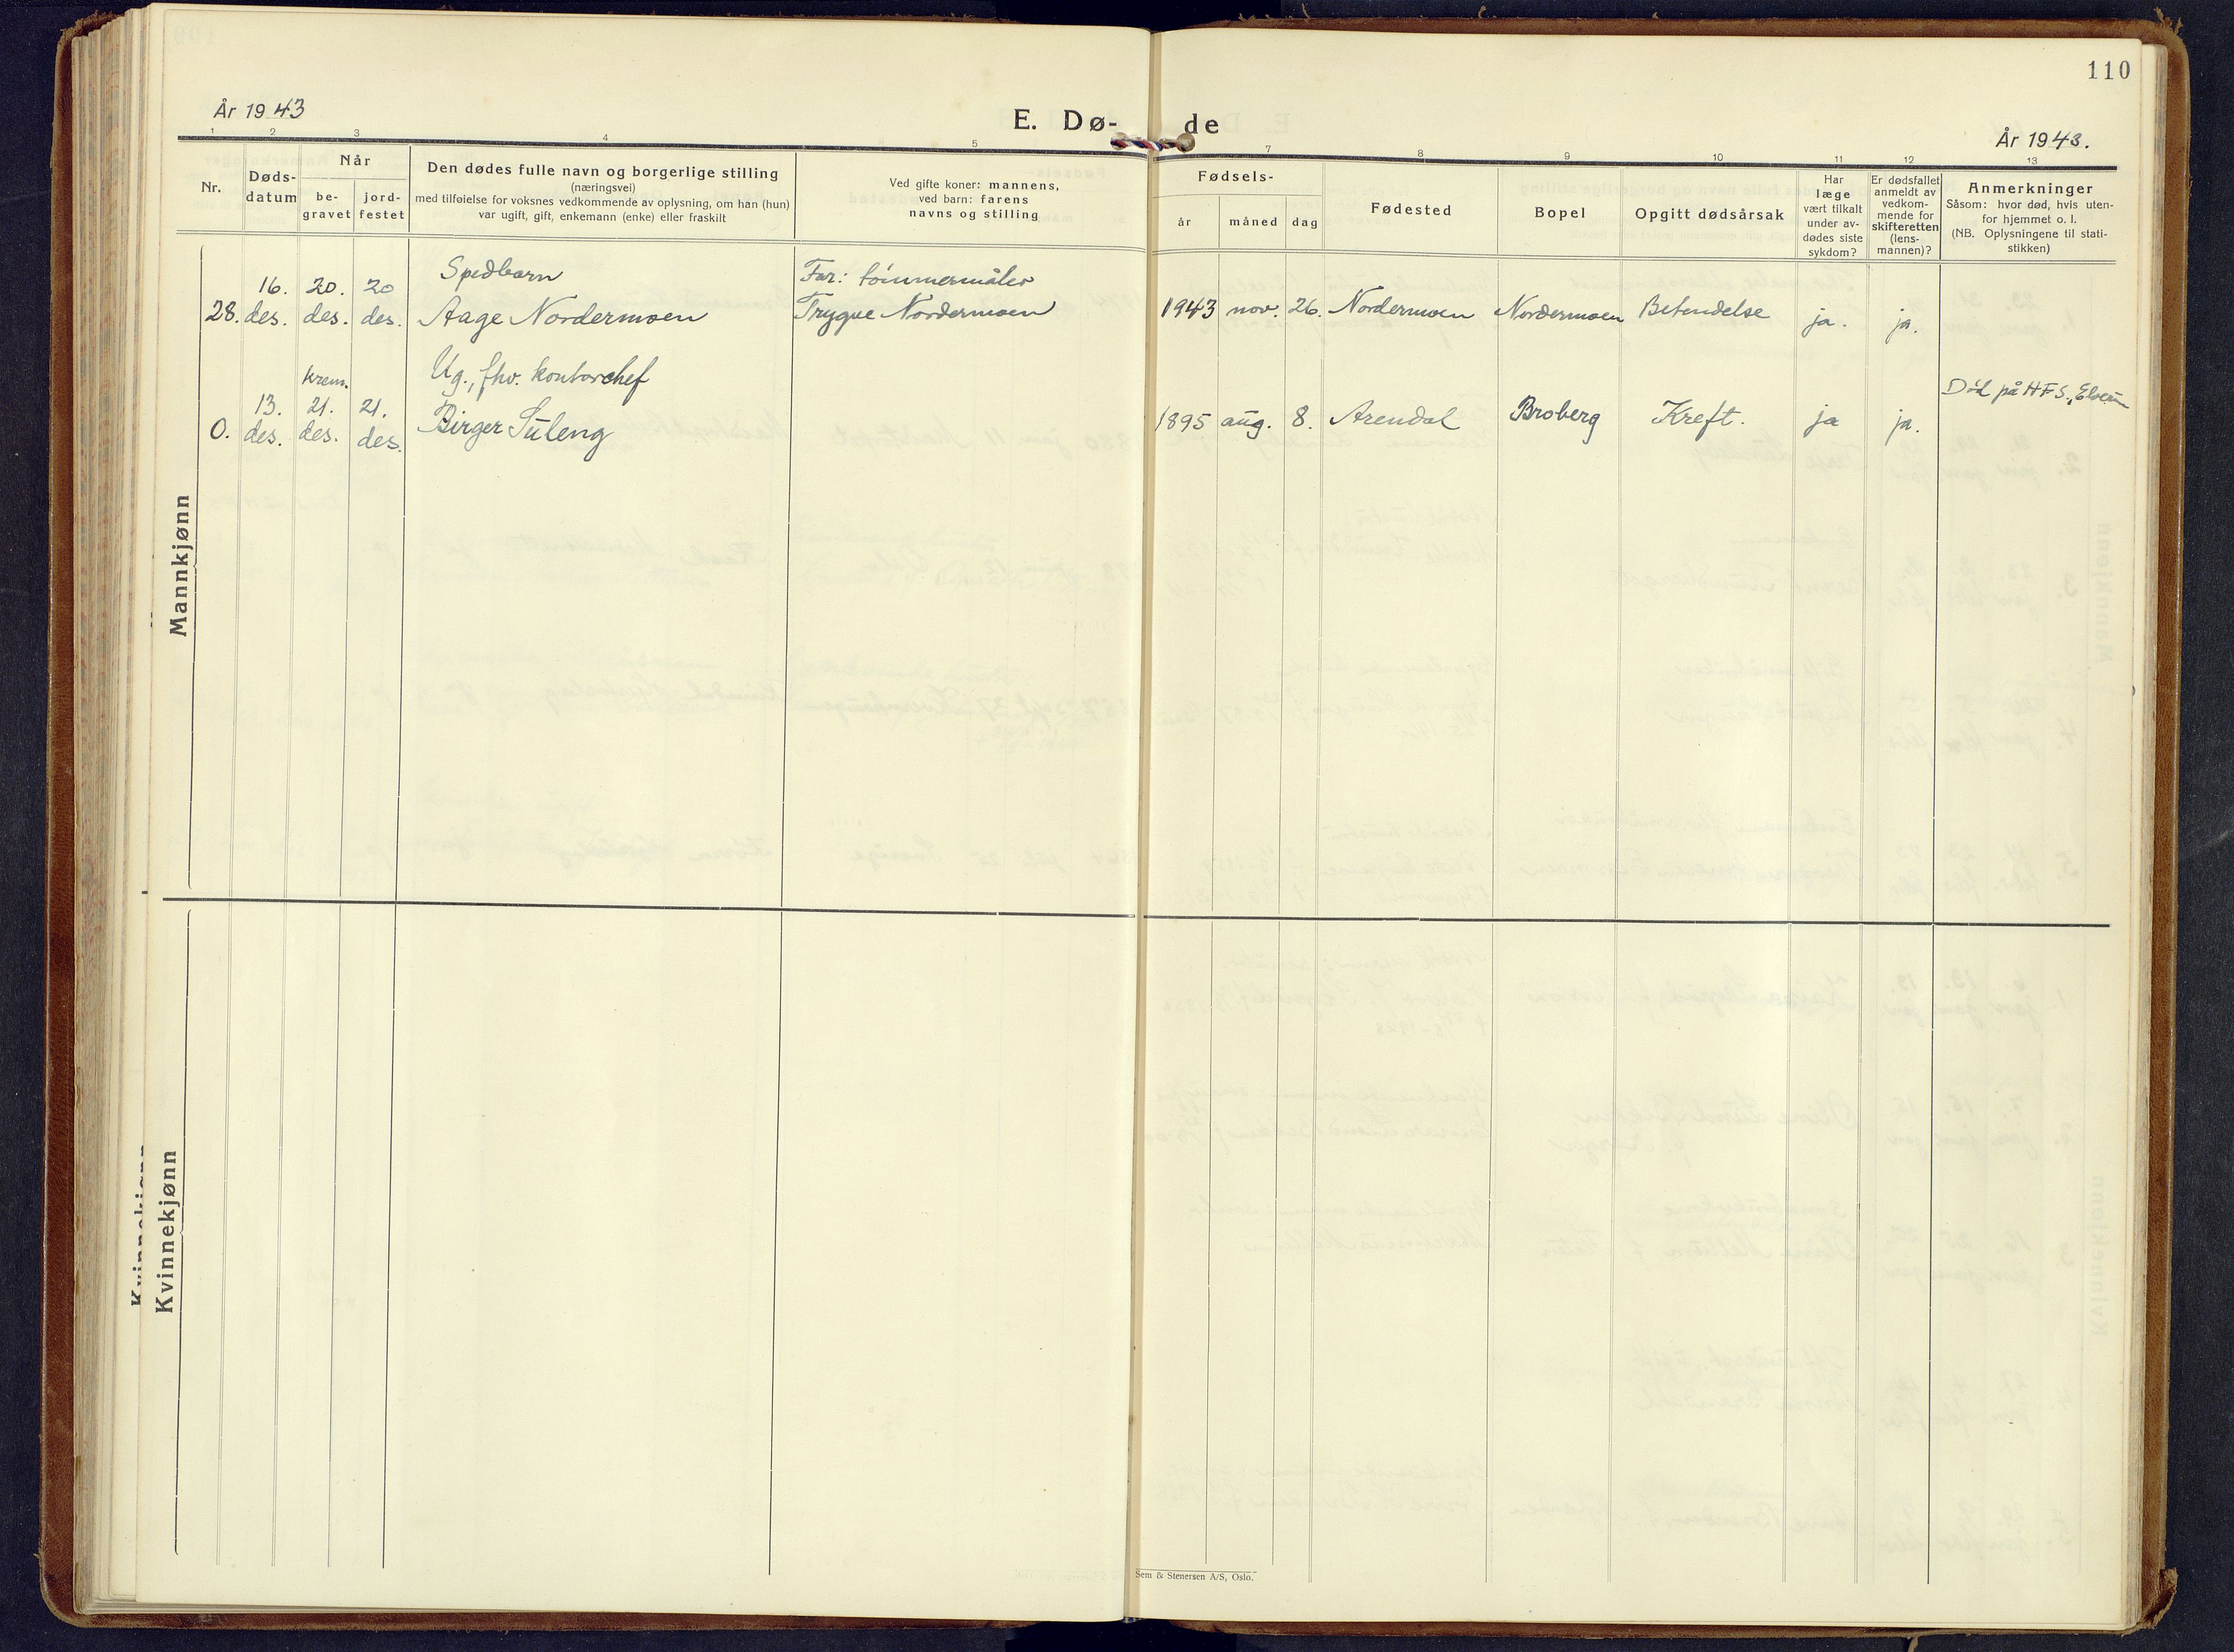 110
År 1943
E. Dø- de
År 1943.
1 2 3 4 5 7 8 9 10 11 12 13
Nr.
Døds-
datum
Når
be-
gravet
jord-
festet
Den dødes fulle navn og borgerlige stilling
(næringsvei)
med tilføielse for voksnes vedkommende av oplysning, om han (hun)
var ugift, gift, enkemann (enke) eller fraskilt
Ved gifte koner: mannens,
ved barn: farens
navns og stilling
Fødsels-
år
måned
dag
Fødested
Bopel
Opgitt dødsårsak
Har
læge
vært tilkalt
under av-
dødes siste
sykdom?
Er dødsfallet
anmeldt av
vedkom-
mende for
skifteretten
(lens-
mannen)?
Anmerkninger
Såsom: hvor død, hvis uten-
for hjemmet o. l.
(NB. Oplysningene til stati-
stikken)
Mannkjønn
Spedbarn Far: tømmermåler
16. 20. 20
28. des. des. des. Aage Nordermoen Trygve Nordermoen 1943 nov. 26. Nordermoen Nordermoen Betendelse ja. ja.
Krem. Ug., fhv. kontorchef
Død på HFS, Elverum
13. 21. 21.
0. des. des. des. Birger Suleng 1895 aug. 8. Arendal Broberg Kreft. ja ja.
Kvinnekjønn
Kvinnekjønn
Sem & Stenersen A/S, Oslo.